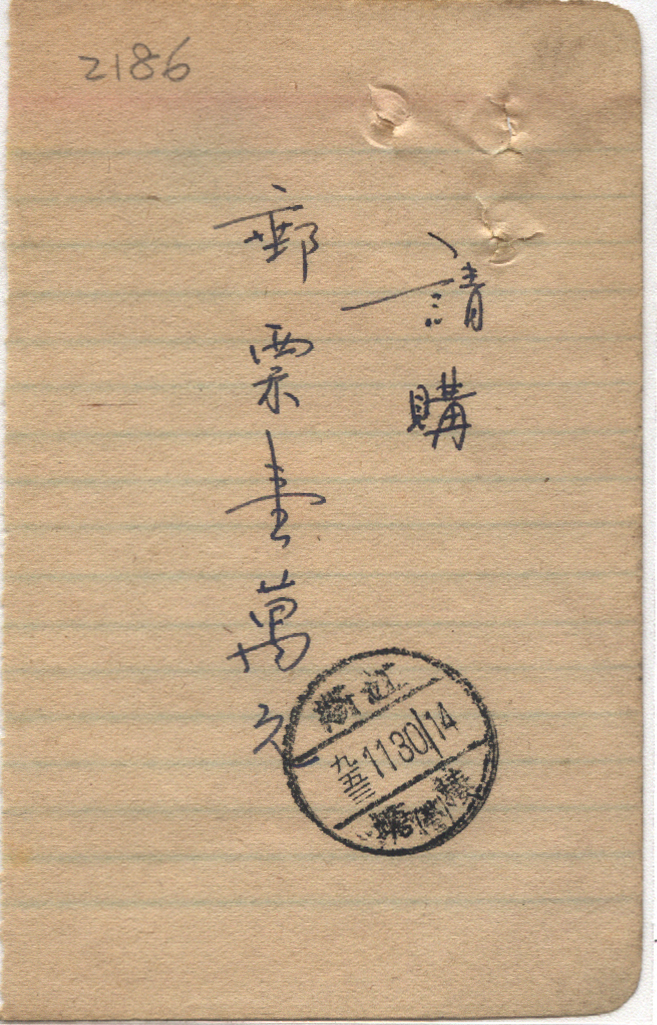 2186
請購
郵票壹萬元
浙江
九五三
11 30 14